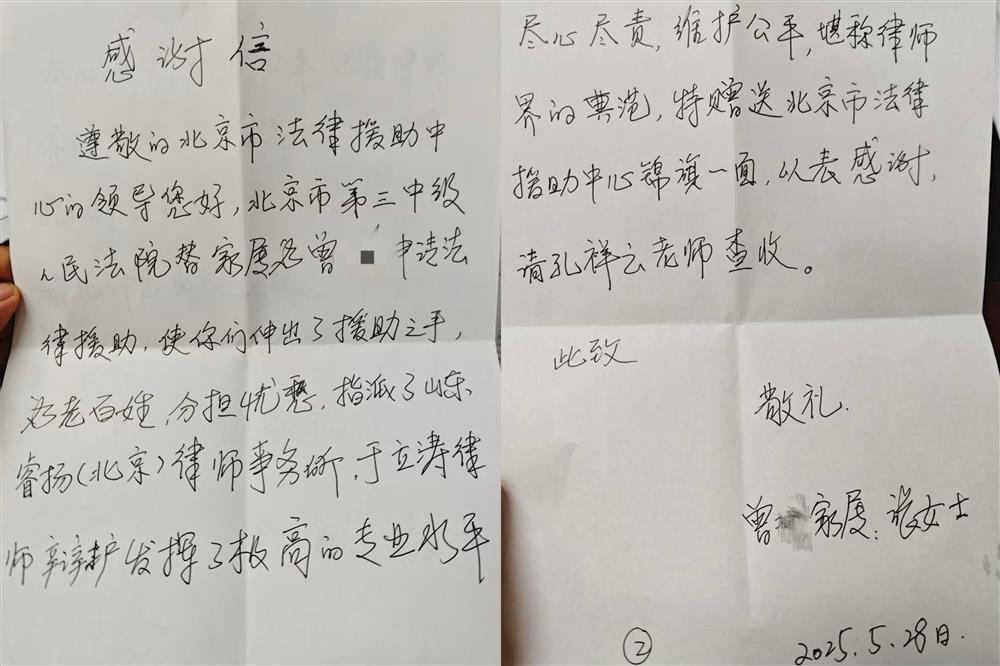 感谢信
尊敬的北京市法律援助中
心的领导您好，北京市第三中级
人民法院替家属为曾 申请法
律援助，使你们伸出了援助之手，
为老百姓，分担忧愁，指派了山东
睿扬（北京）律师事务所，于立涛律
师辩护发挥了极高的专业水平
尽心尽责，维护公平，堪称律师
界的典范，特赠送北京市法律
援助中心锦旗一面，以表感谢，
请孔祥云老师查收。
此致
敬礼.
曾 家属：张女士
② 2025.5.28日.